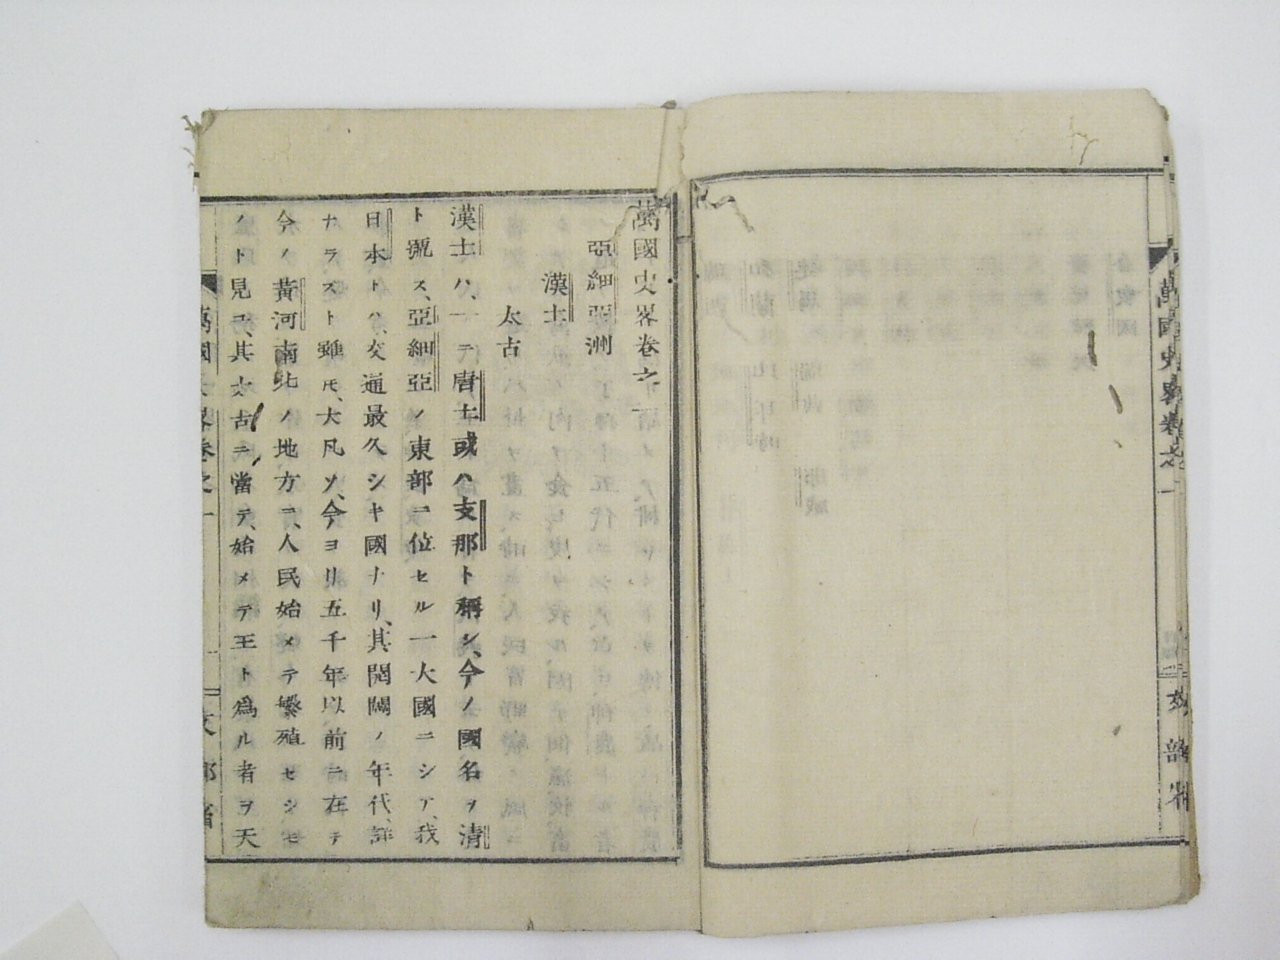 萬國史畧卷之一
文部省
萬國史畧卷之一
亞細亞洲
漢土
太古
漢土ハ、一ニ唐土或ハ支那ト稱シ、今ノ國名ヲ清
ト號ス、亞細亞ノ東部ニ位セル一大國ニシテ、我
日本トハ、交通最久シキ國ナリ、其開闢ノ年代、詳
ナラスト雖モ、大凡ソ、今ヨリ五千年以前ニ在テ
今ノ黃河南北ノ地方ニ、人民始メテ繁殖セシモ
ノト見ユ、其太古ニ當テ、始メテ王ト爲ル者ヲ天
萬國史畧卷之一
一
文部省